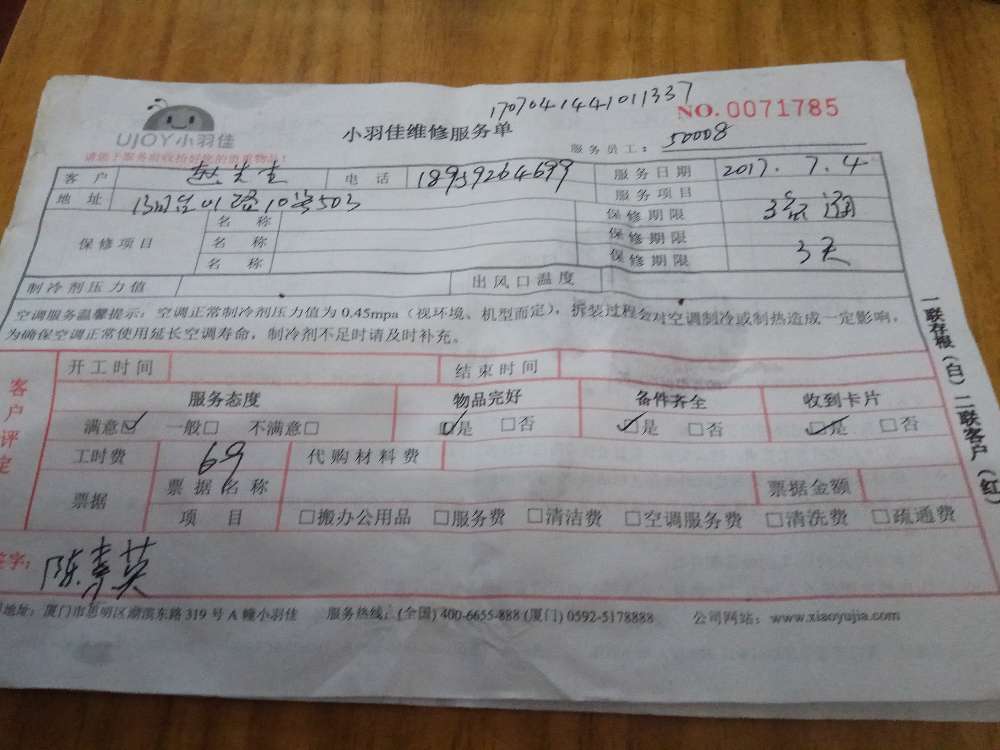 1707041441011337
UJOY小羽佳
小羽佳维修服务单
NO.0071785
请您于服务前收拾好您的贵重物品！
服务员工：50008
客户 赵先生 电话 18959264699 服务日期 2017.7.4
地址 路10号503 服务项目 疏通
保修项目 名称 保修期限
名称 保修期限 3天
名称 保修期限
制冷剂压力值 出风口温度
空调服务温馨提示：空调正常制冷剂压力值为0.45mpa（视环境、机型而定），拆装过程会对空调制冷或制热造成一定影响，
为确保空调正常使用延长空调寿命，制冷剂不足时请及时补充。
客户评定
开工时间 结束时间
服务态度 物品完好 备件齐全 收到卡片
满意☑ 一般□ 不满意□ ☑是 □否 ☑是 □否 ☑是 □否
工时费 69 代购材料费
票据 票据名称 票据金额
项目 □搬办公用品 □服务费 □清洁费 □空调服务费 □清洗费 □疏通费
签字：陈素英
地址：厦门市思明区湖滨东路319号A幢小羽佳 服务热线：(全国)400-6655-888(厦门)0592-5178888 公司网站：www.xiaoyujia.com
一联存根（白）二联客户（红）